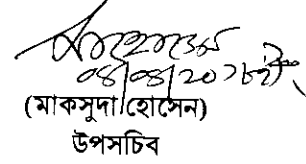 ০৪/০৪/২০১৮ইং
(মাকসুদা হোসেন)
উপসচিব